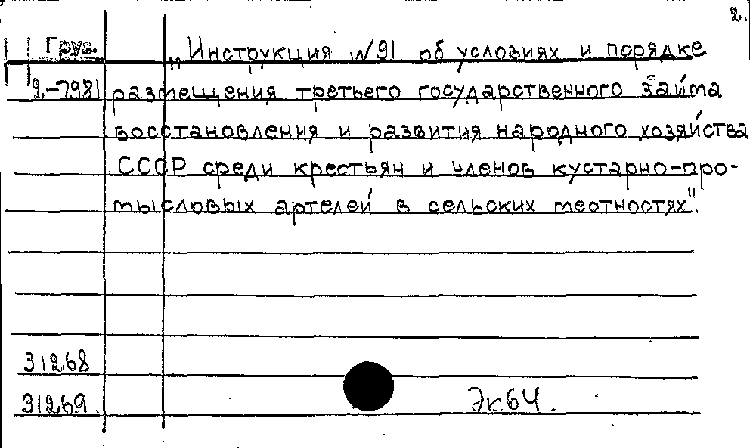 2.
Груз. „Инструкция №91 об условиях и порядке
9.-798 размещения третьего государственного займа
восстановления и развития народного хозяйства
СССР среди крестьян и членов кустарно-про-
мысловых артелей в сельских местностях".
31268
31269. Эк64.